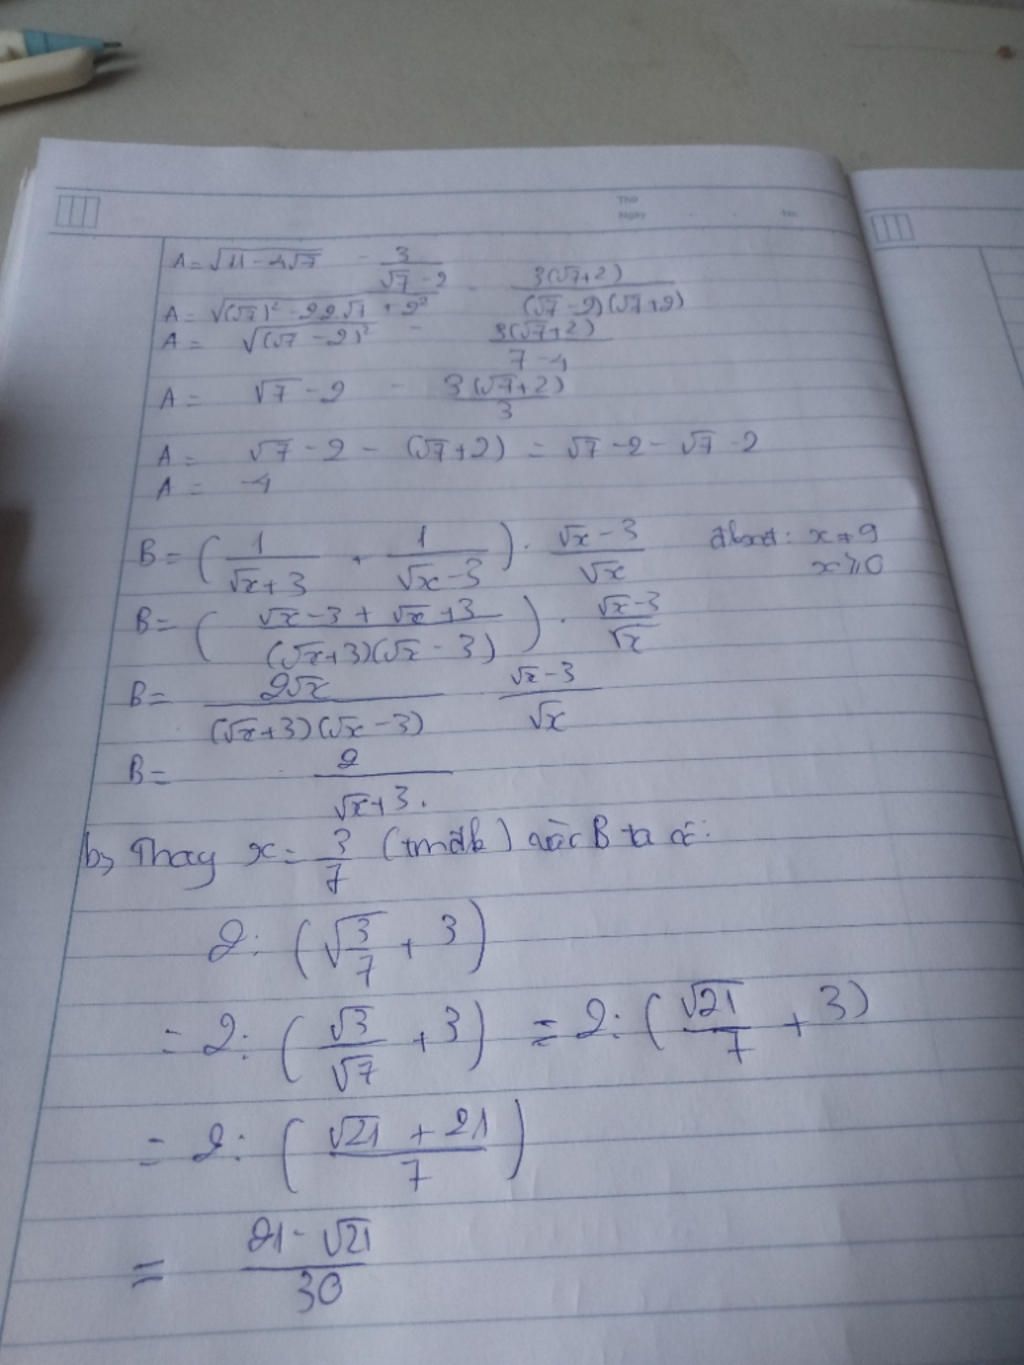 Thứ
Ngày . . No.
A = √(11 - 4√7) - 3/(√7 - 2)
A = √((√7)² - 2.2√7 + 2²) - 3(√7+2)/((√7 - 2)(√7+2))
A = √((√7 - 2)²) - 3(√7+2)/(7 - 4)
A = √7 - 2 - 3(√7+2)/3
A = √7 - 2 - (√7+2) = √7 - 2 - √7 - 2
A = -4
B = (1/(√x+3) + 1/(√x-3)) . (√x - 3)/√x đkxđ: x ≠ 9
x ⩾ 0
B = ((√x - 3 + √x + 3)/((√x+3)(√x - 3))) . (√x-3)/√x
B = 2√x/((√x+3)(√x - 3)) (√x - 3)/√x
B = 2/(√x+3).
b, Thay x = 3/7 (tmđk) vào B ta có:
2 : (√(3/7) + 3)
= 2 : (√3/√7 + 3) = 2 : (√21/7 + 3)
= 2 : ((√21 + 21)/7)
= (21 - √21)/30